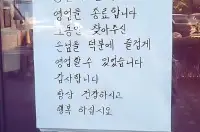 영업을 종료합니다
그동안 찾아주신
손님 덕분에 즐겁게
영업할수 있었습니다
감사합니다
항상 건강하시고
행복 하십시오